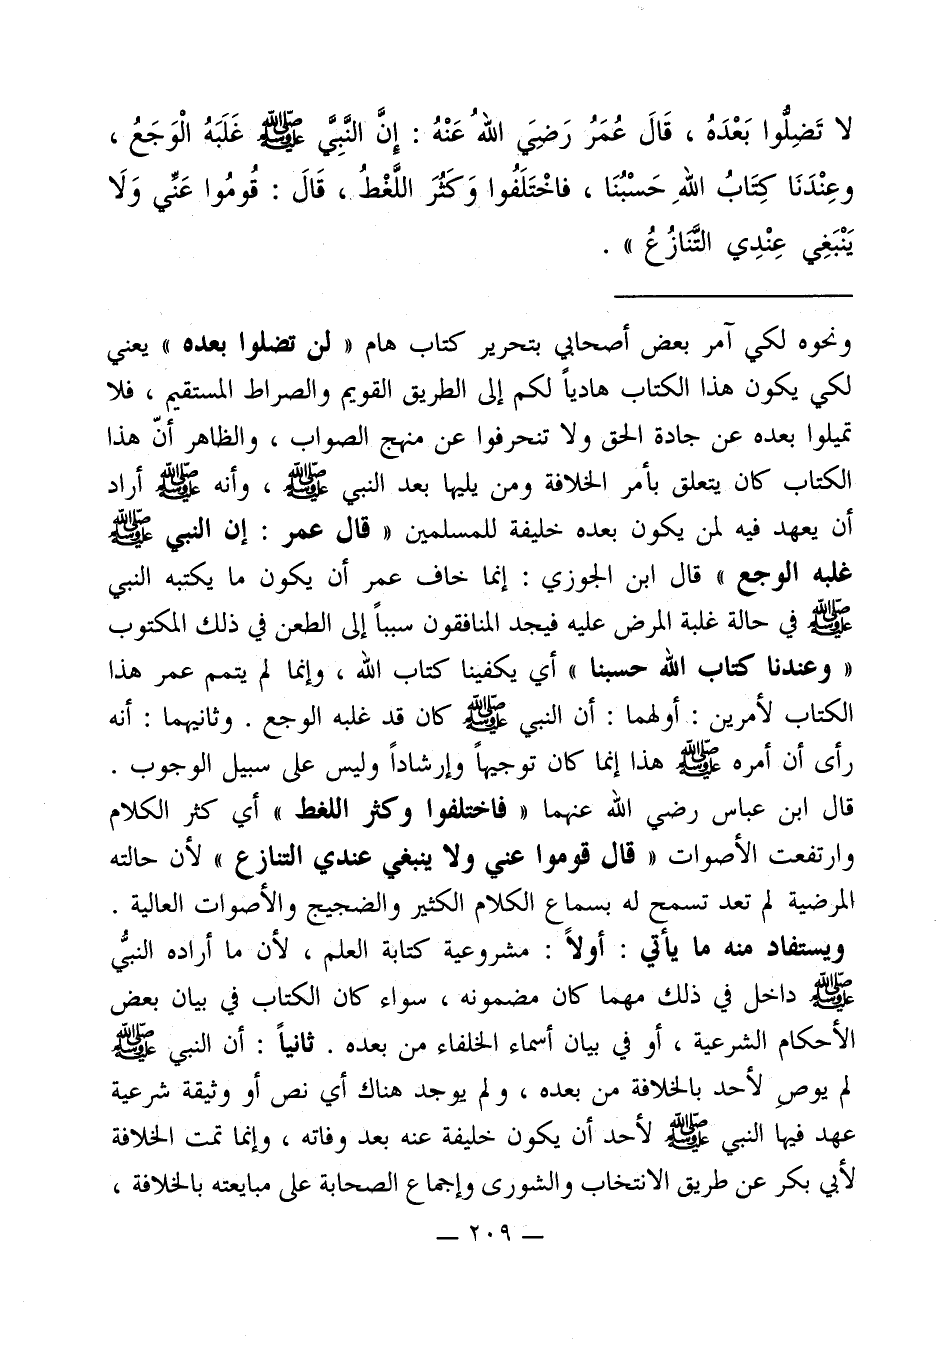 لا تَضِلُّوا بَعْدَهُ ، قَالَ عُمَرُ رَضِيَ اللهُ عَنْهُ : إِنَّ النَّبِيَّ ﷺ غَلَبَهُ الْوَجَعُ ،
وعِنْدَنَا كِتَابُ اللهِ حَسْبُنَا ، فاخْتَلَفُوا وَكَثُرَ اللَّغْطُ ، قَالَ : قُومُوا عَنِّي وَلَا
يَنْبَغِي عِنْدِي التَّنَازُعُ » .
ونحوه لكي آمر بعض أصحابي بتحرير كتاب هام « لن تضلوا بعده » يعني
لكي يكون هذا الكتاب هادياً لكم إلى الطريق القويم والصراط المستقيم ، فلا
تميلوا بعده عن جادة الحق ولا تنحرفوا عن منهج الصواب ، والظاهر أنّ هذا
الكتاب كان يتعلق بأمر الخلافة ومن يليها بعد النبي ﷺ ، وأنه ﷺ أراد
أن يعهد فيه لمن يكون بعده خليفة للمسلمين « قال عمر : إن النبي ﷺ
غلبه الوجع » قال ابن الجوزي : إنما خاف عمر أن يكون ما يكتبه النبي
ﷺ في حالة غلبة المرض عليه فيجد المنافقون سبباً إلى الطعن في ذلك المكتوب
« وعندنا كتاب الله حسبنا » أي يكفينا كتاب الله ، وإنما لم يتمم عمر هذا
الكتاب لأمرين : أولهما : أن النبي ﷺ كان قد غلبه الوجع . وثانيهما : أنه
رأى أن أمره ﷺ هذا إنما كان توجيهاً وإرشاداً وليس على سبيل الوجوب .
قال ابن عباس رضي الله عنهما « فاختلفوا وكثر اللغط » أي كثر الكلام
وارتفعت الأصوات « قال قوموا عني ولا ينبغي عندي التنازع » لأن حالته
المرضية لم تعد تسمح له بسماع الكلام الكثير والضجيج والأصوات العالية .
ويستفاد منه ما يأتي : أولاً : مشروعية كتابة العلم ، لأن ما أراده النبيُّ
ﷺ داخل في ذلك مهما كان مضمونه ، سواء كان الكتاب في بيان بعض
الأحكام الشرعية ، أو في بيان أسماء الخلفاء من بعده . ثانياً : أن النبي ﷺ
لم يوصِ لأحد بالخلافة من بعده ، ولم يوجد هناك أي نص أو وثيقة شرعية
عهد فيها النبي ﷺ لأحد أن يكون خليفة عنه بعد وفاته ، وإنما تمت الخلافة
لأبي بكر عن طريق الانتخاب والشورى وإجماع الصحابة على مبايعته بالخلافة ،
— ٢٠٩ —